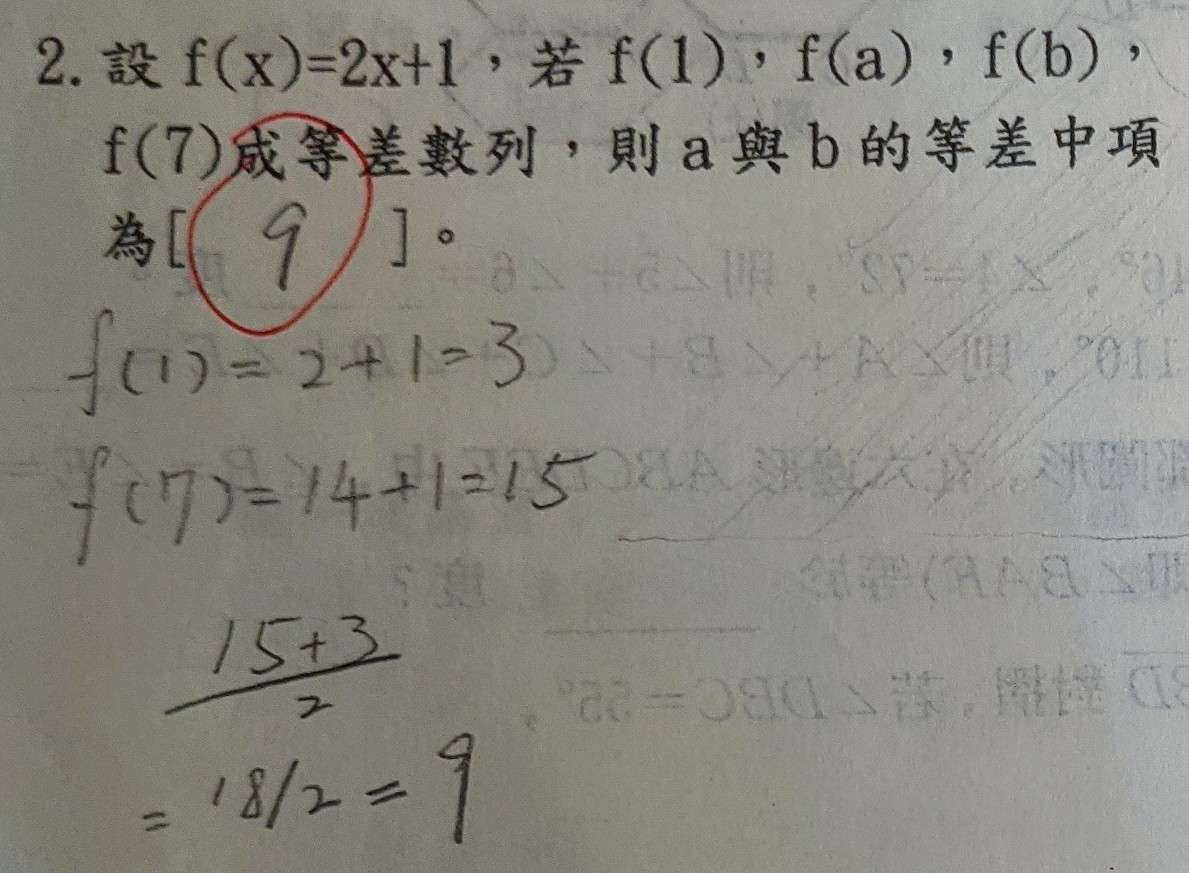 2. 設 f(x)=2x+1，若 f(1)，f(a)，f(b)，
f(7)成等差數列，則 a 與 b 的等差中項
為[ 9 ]。
f(1)=2+1=3
f(7)=14+1=15
15+3
2
=18/2=9